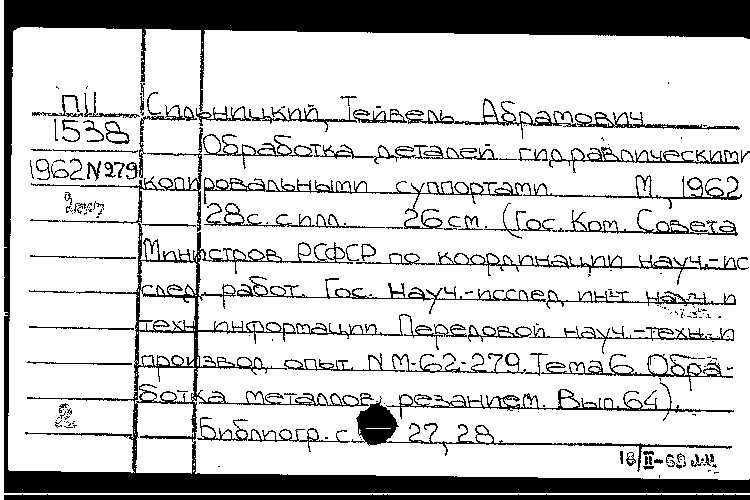 ПII Сильницкий, Тейвель Абрамович
1538 Обработка деталей гидравлическими
1962 N279 копировальными суппортами М., 1962
28с. с илл. 26см. (Гос. Ком. Совета
Министров РСФСР по координации науч.-ис
след. работ. Гос. науч.-исслед. ин-т науч. и
техн информации. Передовой науч.-техн. и
производ. опыт. N М-62-279. Тема 6. Обра-
ботка металлов резанием. Вып. 64).
2 Библиогр. с. 27, 28.
18/II-69